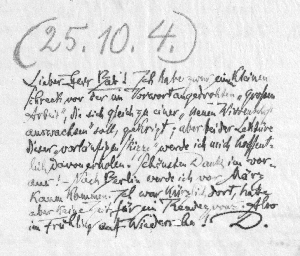 (25.10.4.)
Lieber Herr Bab! Ich habe zwar ein kleinen
Schreck vor der im Vorwort angedrohten, großen
Arbeit, die sich gleich zu einer, neuen Wissenschaft
auswachsen soll, gekriegt; aber bei der Lektüre
dieser vorläufigen Skizze werde ich mich hoffent-
lich davon erholen. Schönsten Dank im vor-
aus! – Nach Berlin werde ich vor März
kaum kommen. Ich war kürzlich dort, hatte
aber keine Zeit für ein Rendezvous. Also
im Frühling auf Wiedersehn! D.